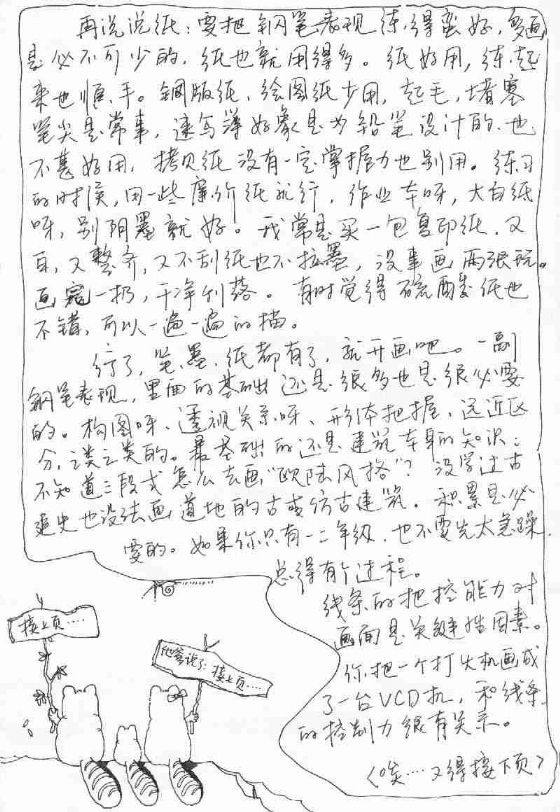 再说说纸：要把钢笔表现练得蛮好，多画
是必不可少的，纸也就用得多。纸好用，练起
来也顺手。铜版纸、绘图纸少用，起毛，堵塞
笔尖是常事，速写簿好象是为铅笔设计的，也
不甚好用，拷贝纸没有一定掌握力也别用。练习
的时侯，用一些廉价纸就行，作业本呀，大白纸
呀，别阴墨就好。我常是买一包复印纸，又
白，又整齐，又不刮纸也不拉墨，没事画两张玩。
画完一扔，干净利落。有时觉得硫酸纸也
不错，可以一遍一遍的描。
行了，笔、墨、纸都有了，就开画吧。一副
钢笔表现，里面的基础还是很多也是很必要
的。构图呀、透视关系呀、形体把握，远近区
分，之类之类的。最基础的还是建筑本身的知识：
不知道三段式怎么去画“欧陆风格”？没学过古
建史也没法画道地的古或仿古建筑。积累是必
要的。如果你只有一二年级，也不要先太急躁，
总得有个过程。
线条的把控能力对
画面是关键性因素。
你把一个打火机画成
了一台VCD机，和线条
的控制力很有关系。
（唉…又得接下页）
接上页…
他爹说了：接上页…